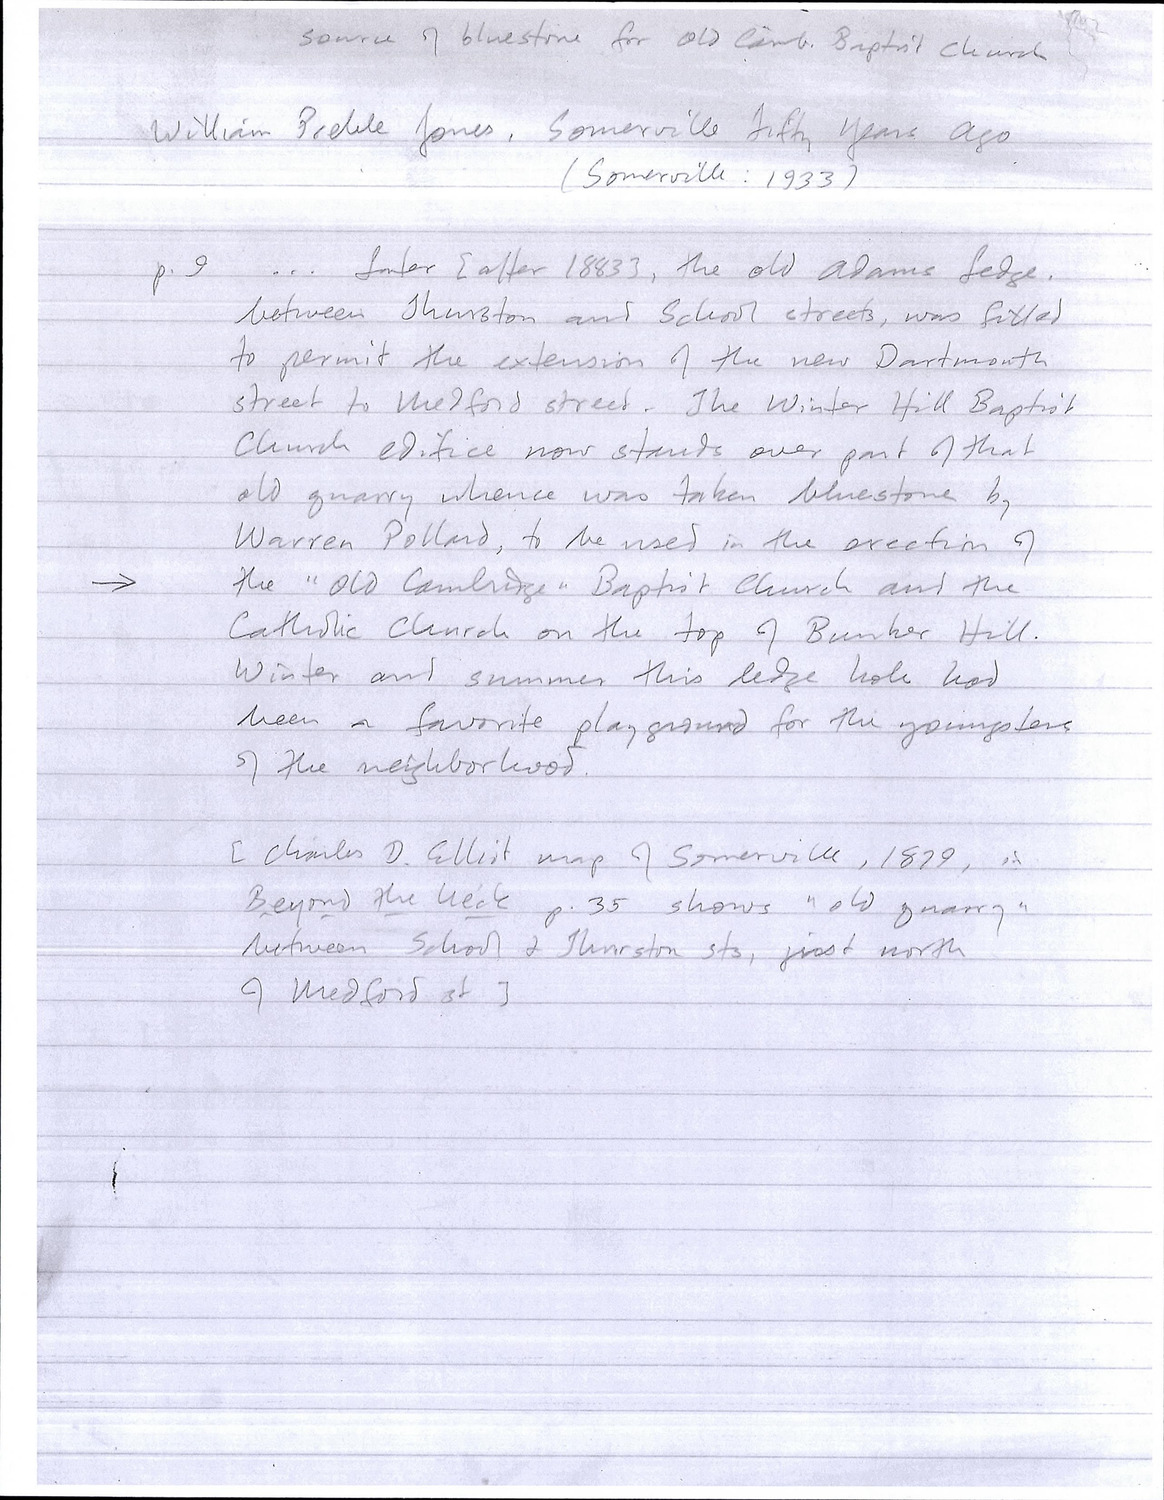 source of bluestone for Old Camb. Baptist Church
William Preble Jones, Somerville Fifty Years Ago
(Somerville: 1933)
p. 9 ... Later [after 1883], the old Adams ledge.
between Thurston and School streets, was filled
to permit the extension of the new Dartmouth
street to Medford street. The Winter Hill Baptist
Church edifice now stands over part of that
old quarry whence was taken bluestone by
Warren Pollard, to be used in the erection of
→ the "Old Cambridge" Baptist Church and the
Catholic Church on the top of Bunker Hill.
Winter and summer this ledge hole had
been a favorite playground for the youngsters
of the neighborhood.
[Charles D. Elliot map of Somerville, 1879, in
Beyond the Neck p. 35 shows "old quarry"
between School & Thurston sts, just north
of Medford st]